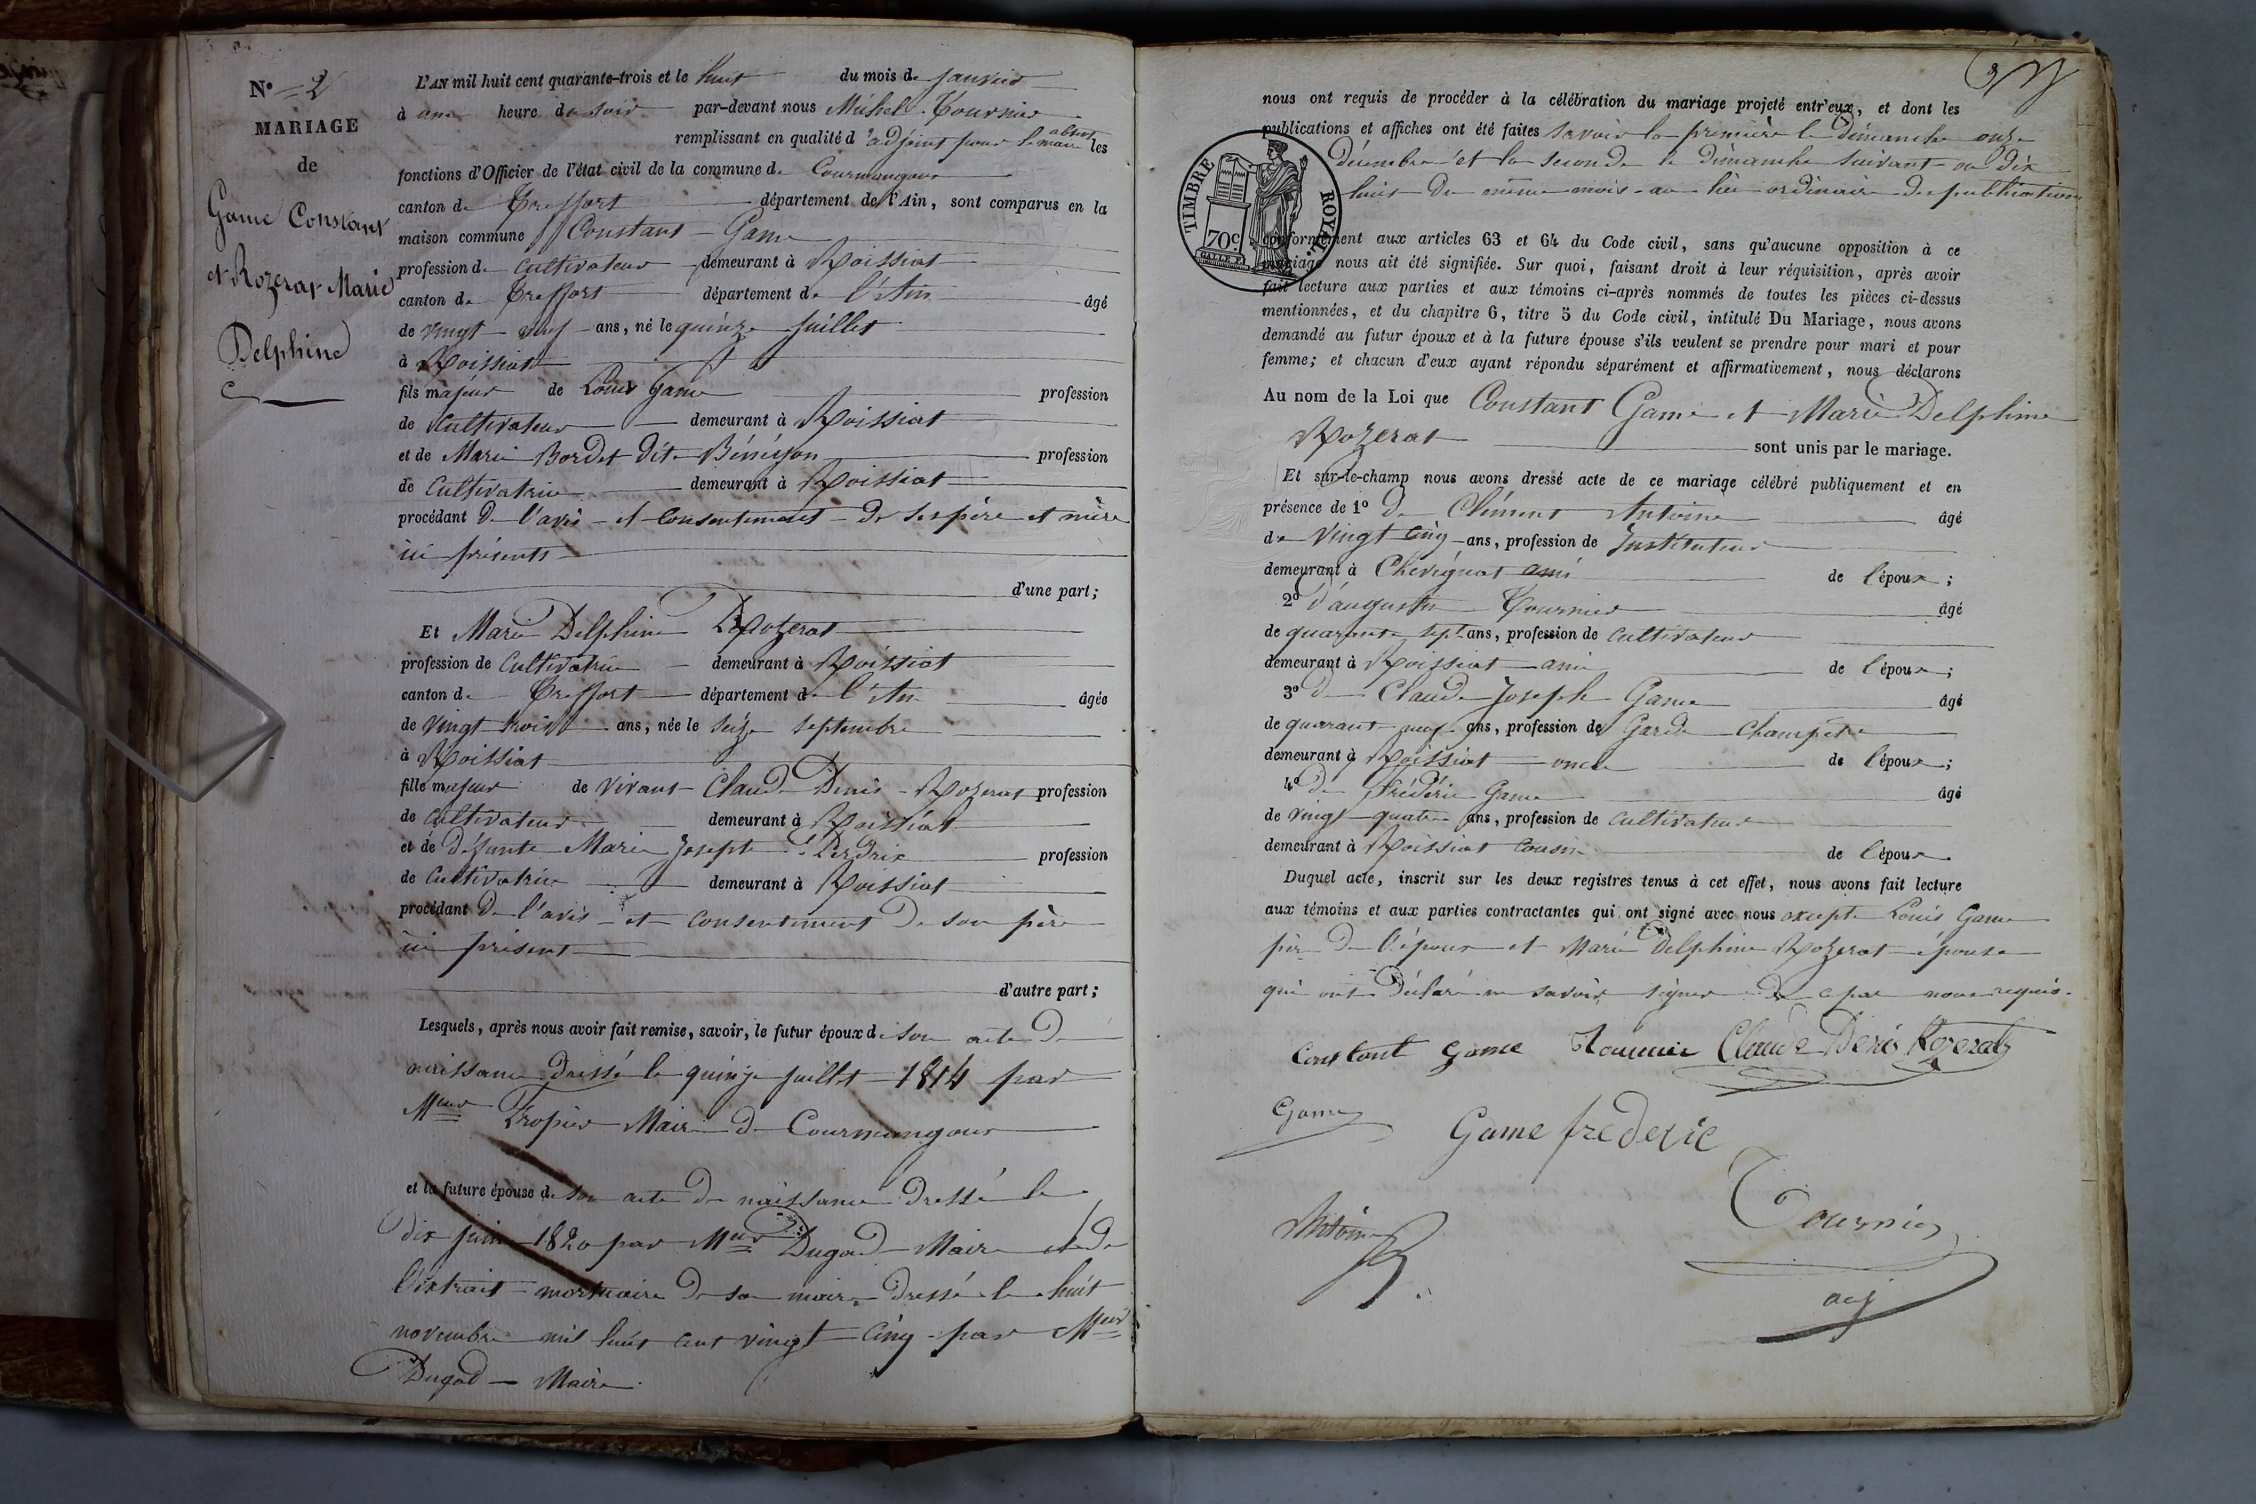 N° 2
MARIAGE
de
Game Constant
et Rozerat Marie
Delphine
L'AN mil huit cent quarante-trois et le huit du mois de janvier
à une heure du soir par-devant nous Michel Tournier
remplissant en qualité d'adjoint pour le maire absent les
fonctions d'Officier de l'état civil de la commune de Courmangoux
canton de Treffort département de l'Ain, sont comparus en la
maison commune Constant Game
profession de cultivateur demeurant à Roissiat
canton de Treffort département de l'Ain âgé
de vingt neuf ans, né le quinze juillet
à Roissiat
fils majeur de Louis Game profession
de cultivateur demeurant à Roissiat
et de Marie Bordet dite profession
de cultivatrice demeurant à Roissiat
procédant de l'avis et consentement de ses père et mère
ici présents
d'une part;
Et Marie Delphine Rozerat
profession de cultivatrice demeurant à Roissiat
canton de Treffort département de l'Ain âgée
de vingt trois ans, née le seize septembre
à Roissiat
fille majeur de vivant Claude Denis Rozerat profession
de cultivateur demeurant à Roissiat
et de défunte Marie Josephte Perdrix profession
de cultivatrice demeurant à Roissiat
procédant de l'avis et consentement de son père
ici présent
d'autre part;
Lesquels, après nous avoir fait remise, savoir, le futur époux de son acte de
naissance dressé le quinze juillet 1814 par
Meur Tropier Maire de Courmangoux
et la future épouse de son acte de naissance dressé le
dix juin 1820 par Meur Dugad Maire et de
l'extrait mortuaire de sa mère dressé le huit
novembre mil huit cent vingt cinq par Meur
Dugad Maire
nous ont requis de procéder à la célébration du mariage projeté entr'eux, et dont les
publications et affiches ont été faites savoir la première le dimanche onze
décembre et la seconde le dimanche suivant ou dix
huit du même mois au lieu ordinaire de publication
TIMBRE ROYAL
70c
conformément aux articles 63 et 64 du Code civil, sans qu'aucune opposition à ce
mariage nous ait été signifiée. Sur quoi, faisant droit à leur réquisition, après avoir
fait lecture aux parties et aux témoins ci-après nommés de toutes les pièces ci-dessus
mentionnées, et du chapitre 6, titre 5 du Code civil, intitulé Du Mariage, nous avons
demandé au futur époux et à la future épouse s'ils veulent se prendre pour mari et pour
femme; et chacun d'eux ayant répondu séparément et affirmativement, nous déclarons
Au nom de la Loi que Constant Game et Marie Delphine
Rozerat sont unis par le mariage.
Et sur-le-champ nous avons dressé acte de ce mariage célébré publiquement et en
présence de 1° de Clément Antoine âgé
de vingt cinq ans, profession de Instituteur
demeurant à Chevignat ami de l'époux;
2° d'augustin Tournier âgé
de quarante sept ans, profession de cultivateur
demeurant à Roissiat ami de l'époux;
3° de Claude Joseph Game âgé
de quarante neuf ans, profession de Garde Champêtre
demeurant à Roissiat oncle de l'époux;
4° de frédéric Game âgé
de vingt quatre ans, profession de cultivateur
demeurant à Roissiat cousin de l'époux
Duquel acte, inscrit sur les deux registres tenus à cet effet, nous avons fait lecture
aux témoins et aux parties contractantes qui ont signé avec nous excepté Louis Game
père de l'époux et Marie Delphine Rozerat épouse
qui ont déclaré ne savoir signer de ce par nous requis.
Constant Game Tournier Claude Denis Rozerat
Game
Game frederic
Antoine
Tournier
adj